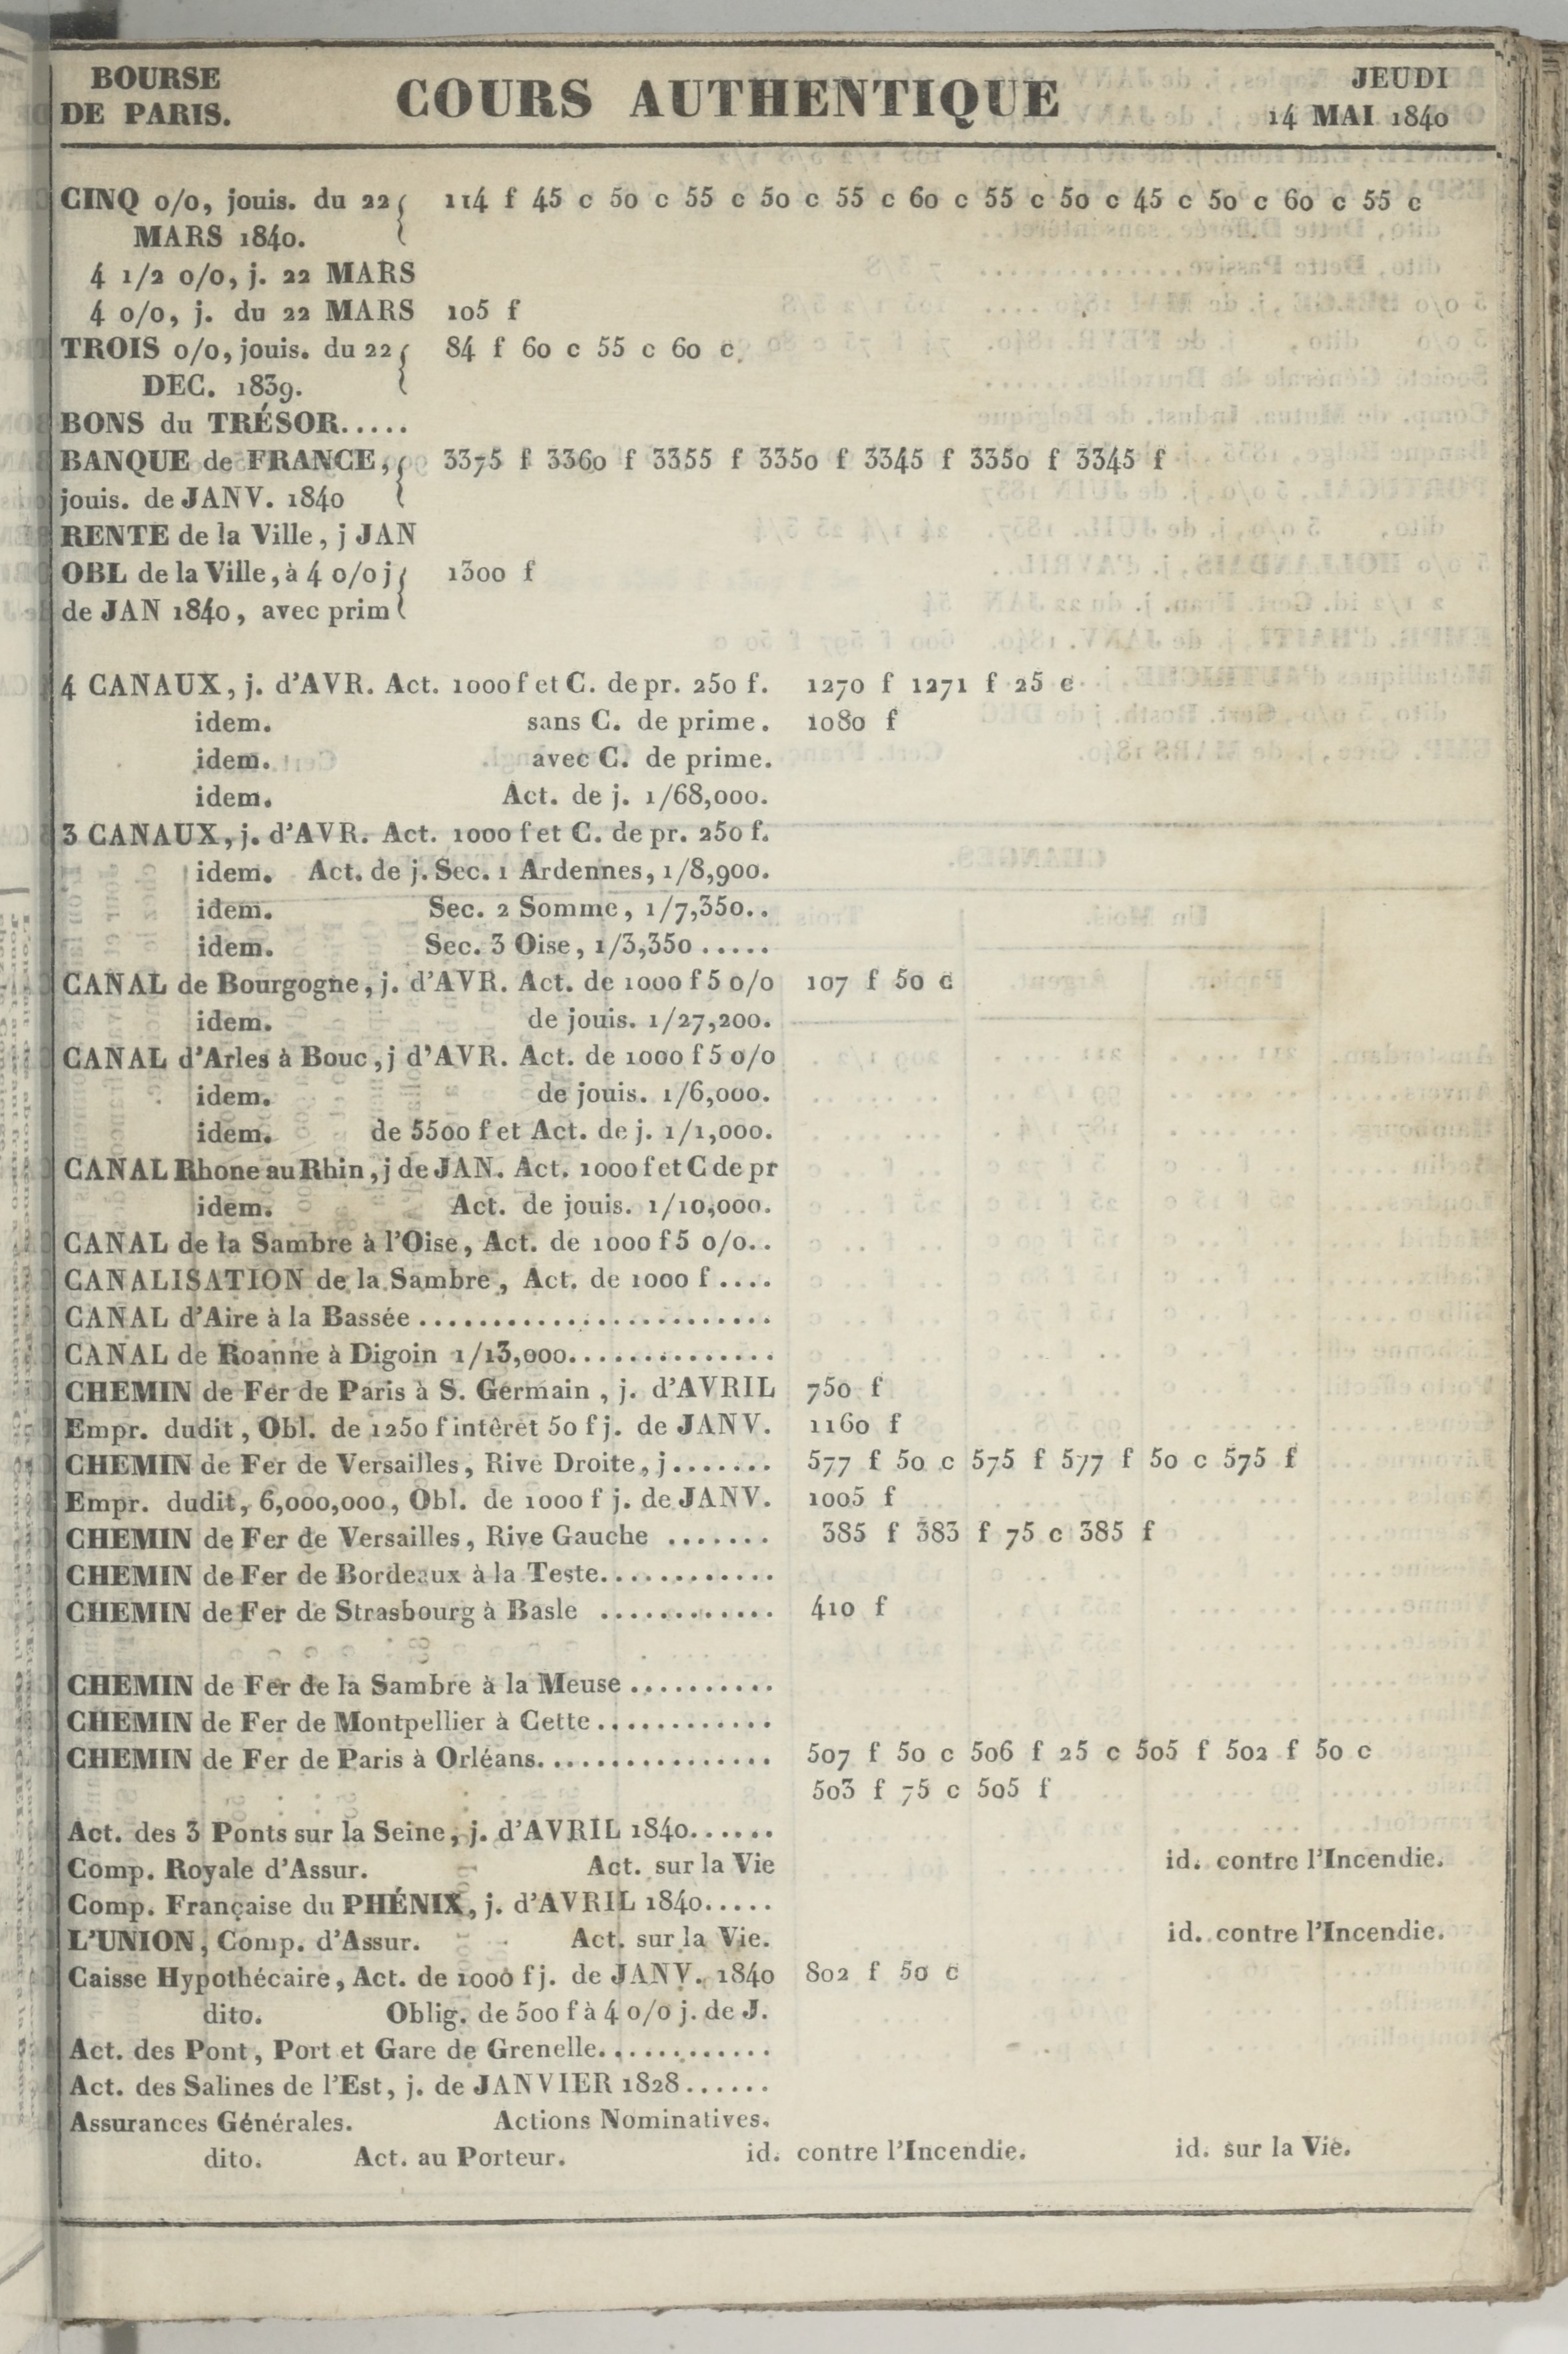 BOURSE DE PARIS.
COURS AUTHENTIQUE
JEUDI 14 MAI 1840
CINQ o/o, jouis. du 22 114 f 45 c 50 c 55 c 50 c 55 c 60 c 55 c 50 c 45 c 50 c 60 c 55 c
MARS 1840.
4 1/2 o/o, j. 22 MARS
4 o/o, j. du 22 MARS 105 f
TROIS o/o, jouis. du 22 84 f 60 c 55 c 60 c
DEC. 1839.
BONS du TRÉSOR.....
BANQUE de FRANCE, 3375 f 3360 f 3355 f 3350 f 3345 f 3350 f 3345 f
jouis. de JANV. 1840
RENTE de la Ville, j JAN
OBL de la Ville, à 4 o/o j 1300 f
de JAN 1840, avec prim
4 CANAUX, j. d'AVR. Act. 1000 f et C. de pr. 250 f. 1270 f 1271 f 25 c
idem. sans C. de prime. 1080 f
idem. avec C. de prime.
idem. Act. de j. 1/68,000.
3 CANAUX, j. d'AVR. Act. 1000 f et C. de pr. 250 f.
idem. Act. de j. Sec. 1 Ardennes, 1/8,900.
idem. Sec. 2 Somme, 1/7,350..
idem. Sec. 3 Oise, 1/3,350.....
CANAL de Bourgogne, j. d'AVR. Act. de 1000 f 5 o/o 107 f 50 c
idem. de jouis. 1/27,200.
CANAL d'Arles à Bouc, j d'AVR. Act. de 1000 f 5 o/o
idem. de jouis. 1/6,000.
idem. de 5500 f et Act. de j. 1/1,000.
CANAL Rhone au Rhin, j de JAN. Act. 1000 f et C de pr
idem. Act. de jouis. 1/10,000.
CANAL de la Sambre à l'Oise, Act. de 1000 f 5 o/o..
CANALISATION de la Sambre, Act. de 1000 f....
CANAL d'Aire à la Bassée........................
CANAL de Roanne à Digoin 1/13,000..............
CHEMIN de Fer de Paris à S. Germain, j. d'AVRIL 750 f
Empr. dudit, Obl. de 1250 f intêrêt 50 f j. de JANV. 1160 f
CHEMIN de Fer de Versailles, Rive Droite, j....... 577 f 50 c 575 f 577 f 50 c 575 f
Empr. dudit, 6,000,000, Obl. de 1000 f j. de JANV. 1005 f
CHEMIN de Fer de Versailles, Rive Gauche ....... 385 f 383 f 75 c 385 f
CHEMIN de Fer de Bordeaux à la Teste............
CHEMIN de Fer de Strasbourg à Basle ............ 410 f
CHEMIN de Fer de la Sambre à la Meuse..........
CHEMIN de Fer de Montpellier à Cette............
CHEMIN de Fer de Paris à Orléans................ 507 f 50 c 506 f 25 c 505 f 502 f 50 c
503 f 75 c 505 f
Act. des 3 Ponts sur la Seine, j. d'AVRIL 1840......
Comp. Royale d'Assur. Act. sur la Vie id. contre l'Incendie.
Comp. Française du PHÉNIX, j. d'AVRIL 1840.....
L'UNION, Comp. d'Assur. Act. sur la Vie. id. contre l'Incendie.
Caisse Hypothécaire, Act. de 1000 f j. de JANV. 1840 802 f 50 c
dito. Oblig. de 500 f à 4 o/o j. de J.
Act. des Pont, Port et Gare de Grenelle............
Act. des Salines de l'Est, j. de JANVIER 1828......
Assurances Générales. Actions Nominatives.
dito. Act. au Porteur. id. contre l'Incendie. id. sur la Vie.